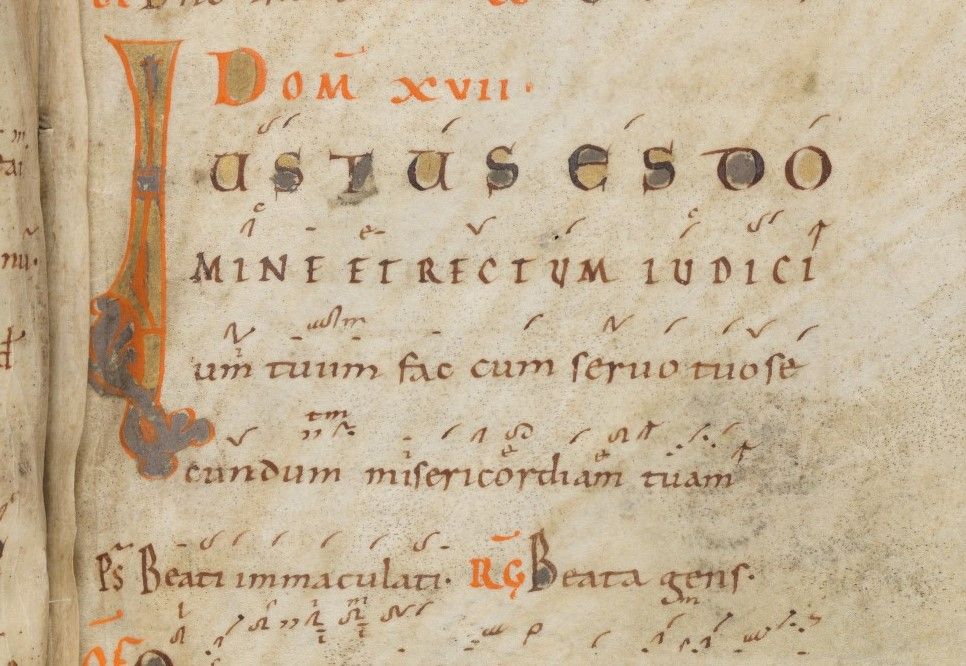 Dom̄ XVII.
IUSTUS ES DO
MINE ET RECTUM IUDICI
um tuum fac cum servo tuo se
cundum misericordiam tuam
Ps Beati immaculati. RG Beata gens.